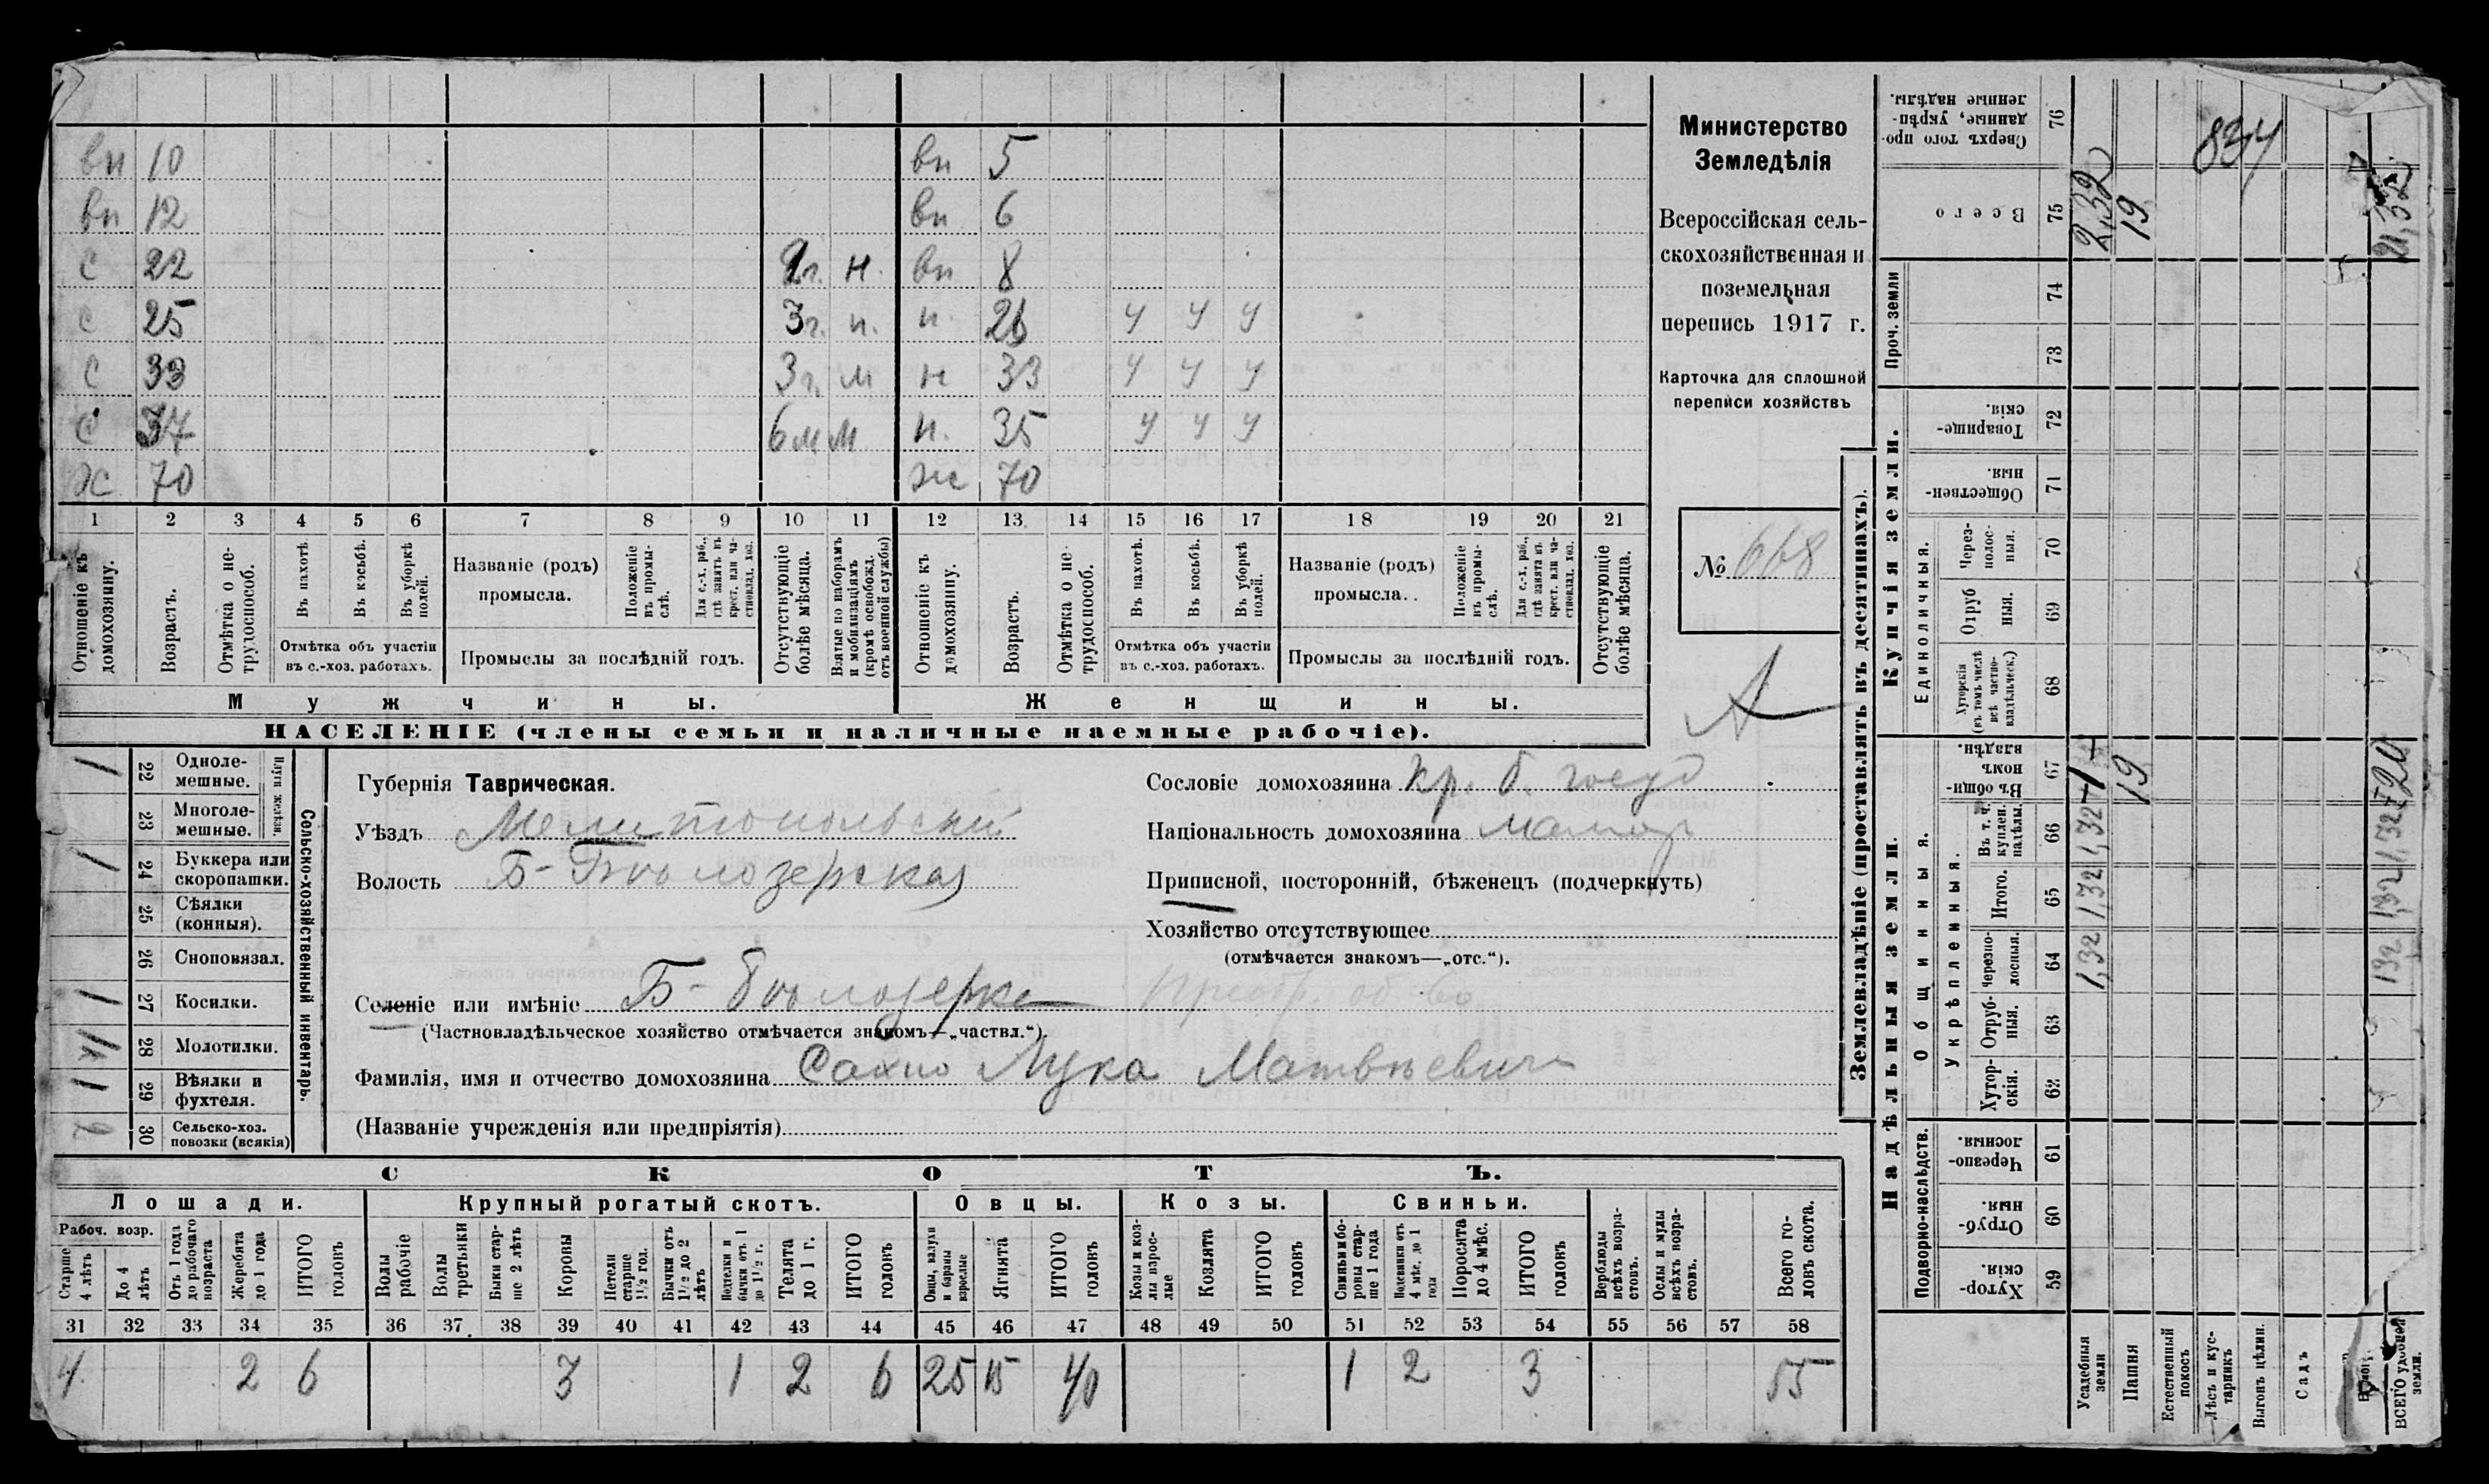 вп 10 вп 5
вп 12 вп 6
с 22 2г. н. вп 8
с 25 3г. н. н. 26 у у у
с 33 3г. м н 33 у у у
с 37 6м м н. 35 у у у
Ж 70 Ж 70
1 2 3 4 5 6 7 8 9 10 11 12 13 14 15 16 17 18 19 20 21
Отношеніе къ домохозяину.
Возрастъ.
Отмѣтка о не-трудоспособ.
Въ пахотѣ.
Въ косьбѣ.
Въ уборкѣ полей.
Отмѣтка объ участіи въ с.-хоз. работахъ.
Названіе (родъ) промысла.
Положеніе въ промы-слѣ.
Для с.-х. раб., гдѣ занятъ въ крест. или ча-стновлад. хоз.
Промыслы за послѣдній годъ.
Отсутствующіе болѣе мѣсяца.
Взятые по наборамъ и мобилизаціямъ (кромѣ освобожд. отъ военной службы)
Отношеніе къ домохозяину.
Возрастъ.
Отмѣтка о не-трудоспособ.
Въ пахотѣ.
Въ косьбѣ.
Въ уборкѣ полей.
Отмѣтка объ участіи въ с.-хоз. работахъ.
Названіе (родъ) промысла.
Положеніе въ промы-слѣ.
Для с.-х. раб., гдѣ занята въ крест. или ча-стновлад. хоз.
Промыслы за послѣдній годъ.
Отсутствующіе болѣе мѣсяца.
Мужчины.
Женщины.
НАСЕЛЕНІЕ (члены семьи и наличные наемные рабочіе).
Министерство
Земледѣлія
Всероссійская сель-
скохозяйственная и
поземельная
перепись 1917 г.
Карточка для сплошной
переписи хозяйствъ
№ 668
А
Сельско-хозяйственный инвентарь.
Плуги желѣзн.
1 22 Одноле-мешные.
23 Многоле-мешные.
1 24 Буккера или скоропашки.
25 Сѣялки (конныя).
26 Сноповязал.
1 27 Косилки.
28 Молотилки.
1 29 Вѣялки и фухтеля.
30 Сельско-хоз. повозки (всякія)
Губернія Таврическая.
Уѣздъ Мелитопольскій
Волость Б-Бѣлозерская
Сословіе домохозяина кр. б. госуд
Національность домохозяина малор
Приписной, посторонній, бѣженецъ (подчеркнуть)
Хозяйство отсутствующее
(отмѣчается знакомъ—„отс.“).
Селеніе или имѣніе Б-Бѣлозерка
(Частновладѣльческое хозяйство отмѣчается знакомъ—„частвл.“).
Фамилія, имя и отчество домохозяина Сахно Лука Матвѣевичъ
(Названіе учрежденія или предпріятія)
СКОТЪ.
Лошади. Крупный рогатый скотъ. Овцы. Козы. Свиньи.
Рабоч. возр.
Старше 4 лѣтъ
До 4 лѣтъ
Отъ 1 года до рабочаго возраста
Жеребята до 1 года
ИТОГО головъ
Волы рабочіе
Волы третьяки
Быки стар-ше 2 лѣтъ
Коровы
Нетели старше 1½ год.
Бычки отъ 1½ до 2 лѣтъ
Нетелки и бычки отъ 1 до 1½ г.
Телята до 1 г.
ИТОГО головъ
Овцы, валухи и бараны взрослые
Ягнята
ИТОГО головъ
Козы и коз-лы взрос-лые
Козлята
ИТОГО головъ
Свиньи и бо-ровы стар-ше 1 года
Подсвинки отъ 4 мѣс. до 1 года
Поросята до 4 мѣс.
ИТОГО головъ
Верблюды всѣхъ возра-стовъ.
Ослы и мулы всѣхъ возра-стовъ.
Всего го-ловъ скота.
31 32 33 34 35 36 37 38 39 40 41 42 43 44 45 46 47 48 49 50 51 52 53 54 55 56 57 58
4 2 6 3 1 2 6 25 15 40 1 2 3 55
Землевладѣніе (проставлять въ десятинахъ).
Купчія земли.
Надѣльныя земли.
Проч. земли
Единоличныя.
Общинныя.
Укрѣпленныя.
Подворно-наслѣдств.
Сверхъ того про-данные, укрѣп-ленные надѣлы. 76
Всего 75 2,32 19
834
21,32
74
73
Товарище-скія. 72
Обществен-ныя. 71
Через-полос-ныя. 70
Отруб ныя. 69
Хуторскія (въ томъ числѣ всѣ частно-владѣльческ.) 68
Въ общин-номъ владѣн. 67 1 19 20
Въ т. ч. куплен. надѣлы. 66 1,32 1,32
Итого. 65 1,32 1,32
Черезпо-лосныя. 64 1,32 132
Отруб-ныя. 63
Хутор-скія. 62
Черезпо-лосныя. 61
Отруб-ныя. 60
Хутор-скія. 59
Усадебныя земли
Пашня
Естественный покосъ
Лѣсъ и кус-тарникъ
Выгонъ цѣлин.
Садъ
ВСЕГО удобной земли.